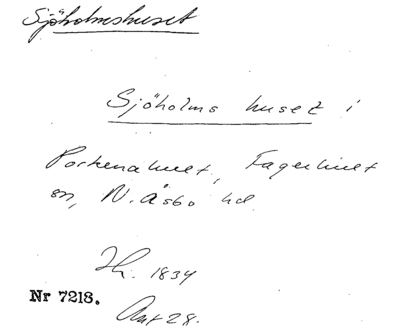 Sjöholmshuset
Sjöholms huset i
Porkenahuset, Fagerhult
sn, N. Åsbo hd
Hr. 1834
Nr 7218.
Ant 28.